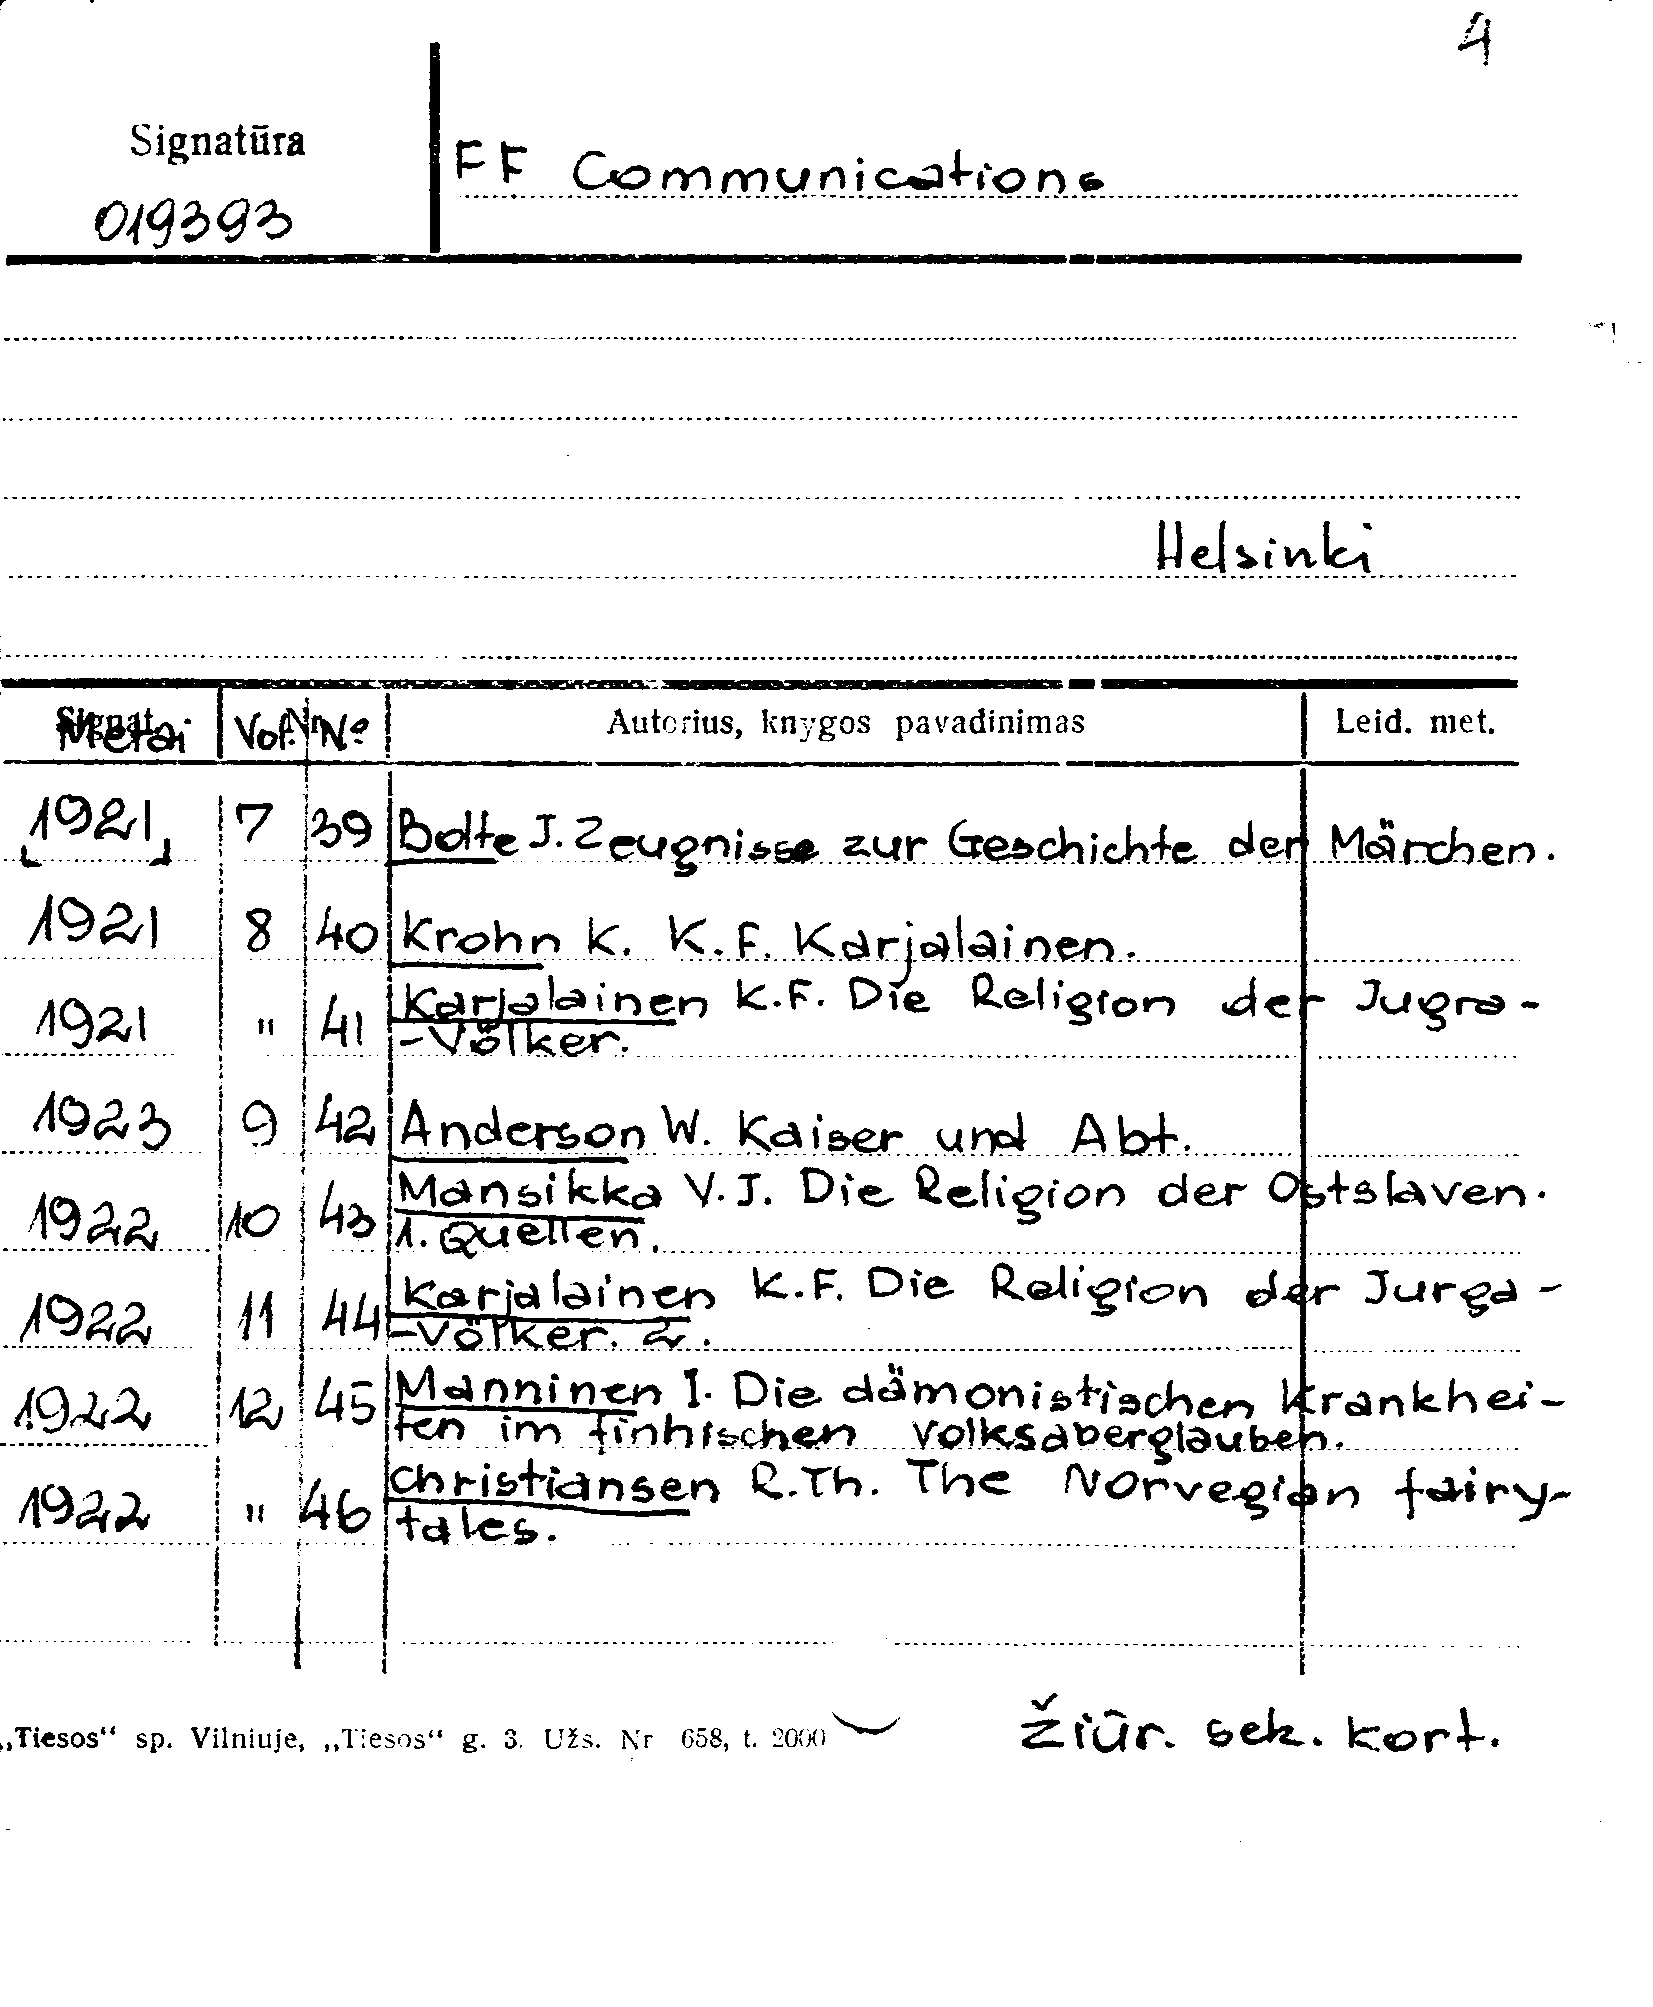 4
Signatūra
FF Communications
019393
Helsinki
Metai Vol. No Autorius, knygos pavadinimas Leid. met.
1921 7 39 Bolte J. Zeugnisse zur Geschichte der Märchen.
1921 8 40 Krohn K. K.F. Karjalainen.
1921 " 41 Karjalainen K.F. Die Religion der Jugra-
-Völker.
1923 9 42 Anderson W. Kaiser und Abt.
1922 10 43 Mansikka V.J. Die Religion der Ostslaven.
1. Quellen.
1922 11 44 Karjalainen K.F. Die Religion der Jurga-
-Völker. 2.
1922 12 45 Manninen I. Die dämonistischen Krankhei-
ten im finnischen Volksaberglauben.
1922 " 46 Christiansen R.Th. The Norvegian fairy-
tales.
„Tiesos“ sp. Vilniuje, „Tiesos“ g. 3. Užs. Nr 658, t. 2000
Žiūr. sek. kort.